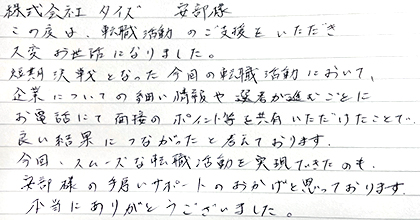 株式会社タイズ 安部様
この度は、転職活動のご支援をいただき
大変お世話になりました。
短期決戦となった今回の転職活動において、
企業についての細い情報や選考が進むごとに
お電話にて面接のポイント等を共有いただけたことで、
良い結果につながったと考えております。
今回、スムーズな転職活動を実現できたのも、
安部様の手厚いサポートのおかげと思っております。
本当にありがとうございました。